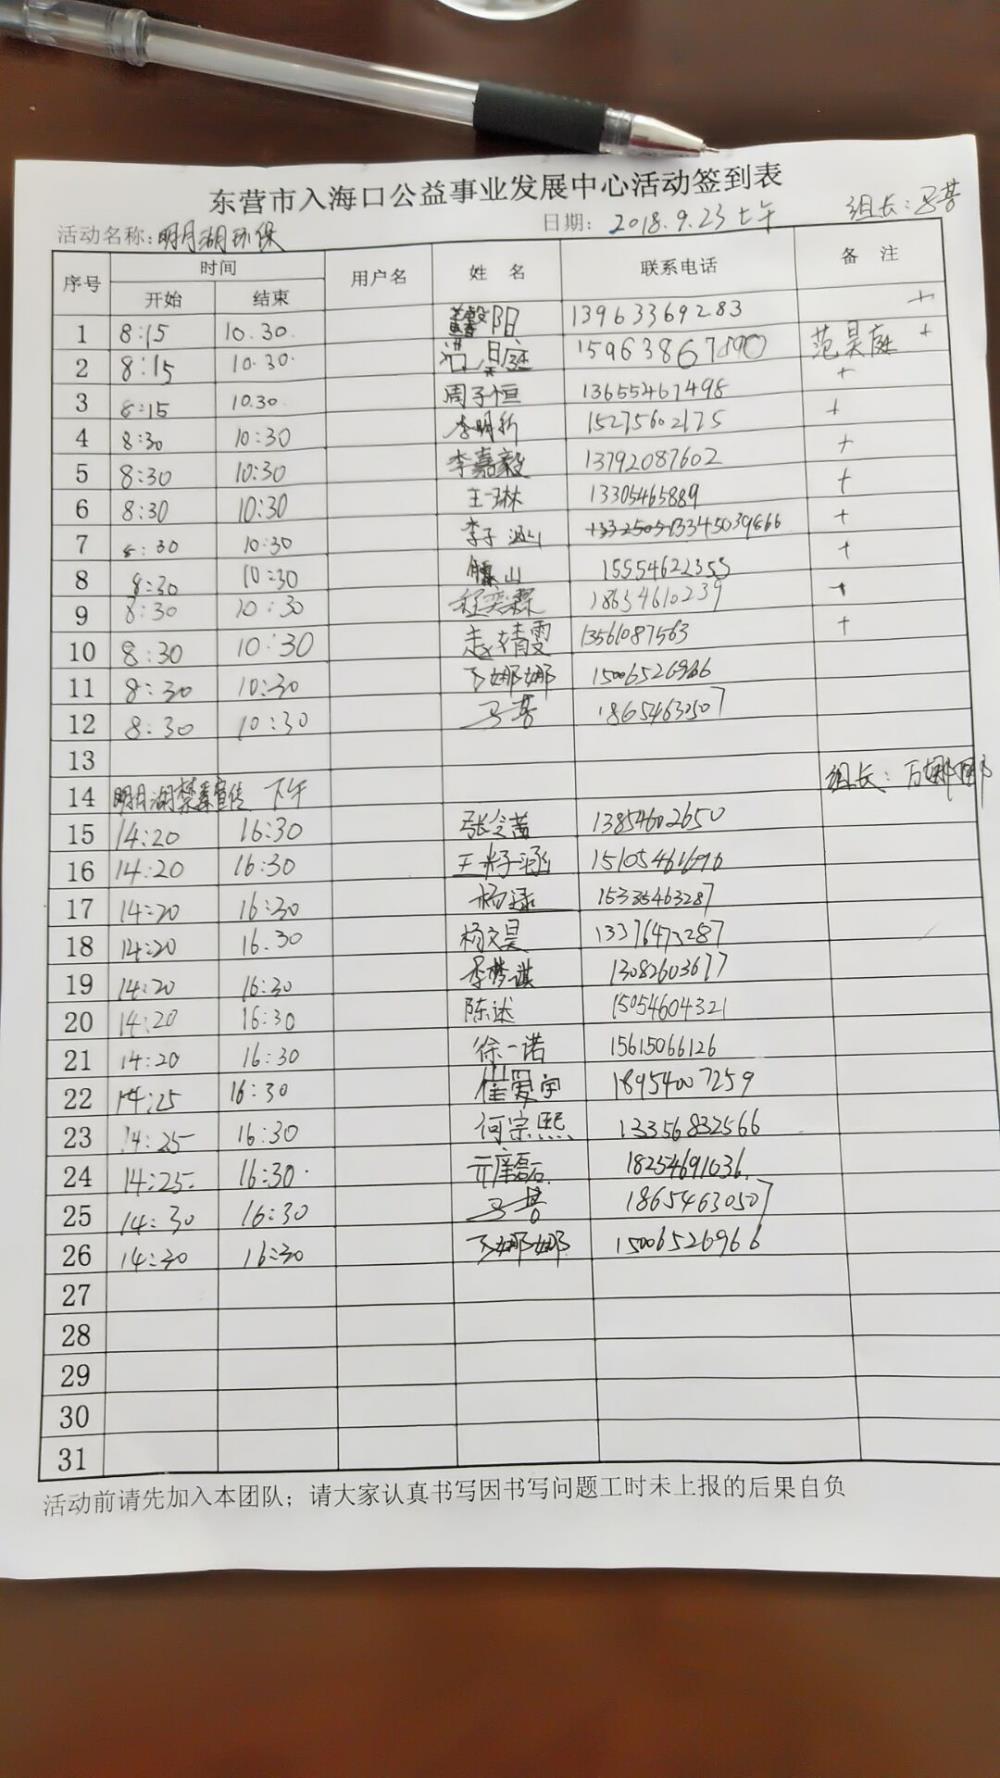 东营市入海口公益事业发展中心活动签到表
活动名称:明月湖环保 日期: 2018.9.23上午 组长:马菩
序号 时间 用户名 姓 名 联系电话 备 注
开始 结束
1 8:15 10.30. 馨阳 13963369283 +
2 8:15 10.30. 范昊庭 15963867890 范昊庭 +
3 8:15 10.30. 周子恒 13655467498 +
4 8:30 10:30 李明忻 15275602175 +
5 8:30 10:30 李嘉毅 13792087602 +
6 8:30 10:30 王琳 13305465889 +
7 8:30 10:30 李子涵 13345039866 +
8 8:30 10:30 滕山 15554622355 +
9 8:30 10:30 程奕霖 18654610239 +
10 8:30 10:30 赵婧雯 13561087563 +
11 8:30 10:30 万娜娜 15006526966
12 8:30 10:30 马菩 18654632507
13
14 明月湖禁毒宣传 下午 组长:万娜娜
15 14:20 16:30 张令茜 13854602650
16 14:20 16:30 王籽涵 15105461696
17 14:20 16:30 杨禄 15335463287
18 14:20 16.30 杨文昊 13376473287
19 14:20 16:30 李梦琪 13082603677
20 14:20 16:30 陈述 15054604321
21 14:20 16:30 徐一诺 15615066126
22 14:25 16:30 崔爱宇 18954007259
23 14:25 16:30 何宗熙 13356832566
24 14:25 16:30. 磊 18254691036.
25 14:30 16:30 马菩 18654630507
26 14:30 16:30 万娜娜 15006526966
27
28
29
30
31
活动前请先加入本团队；请大家认真书写因书写问题工时未上报的后果自负